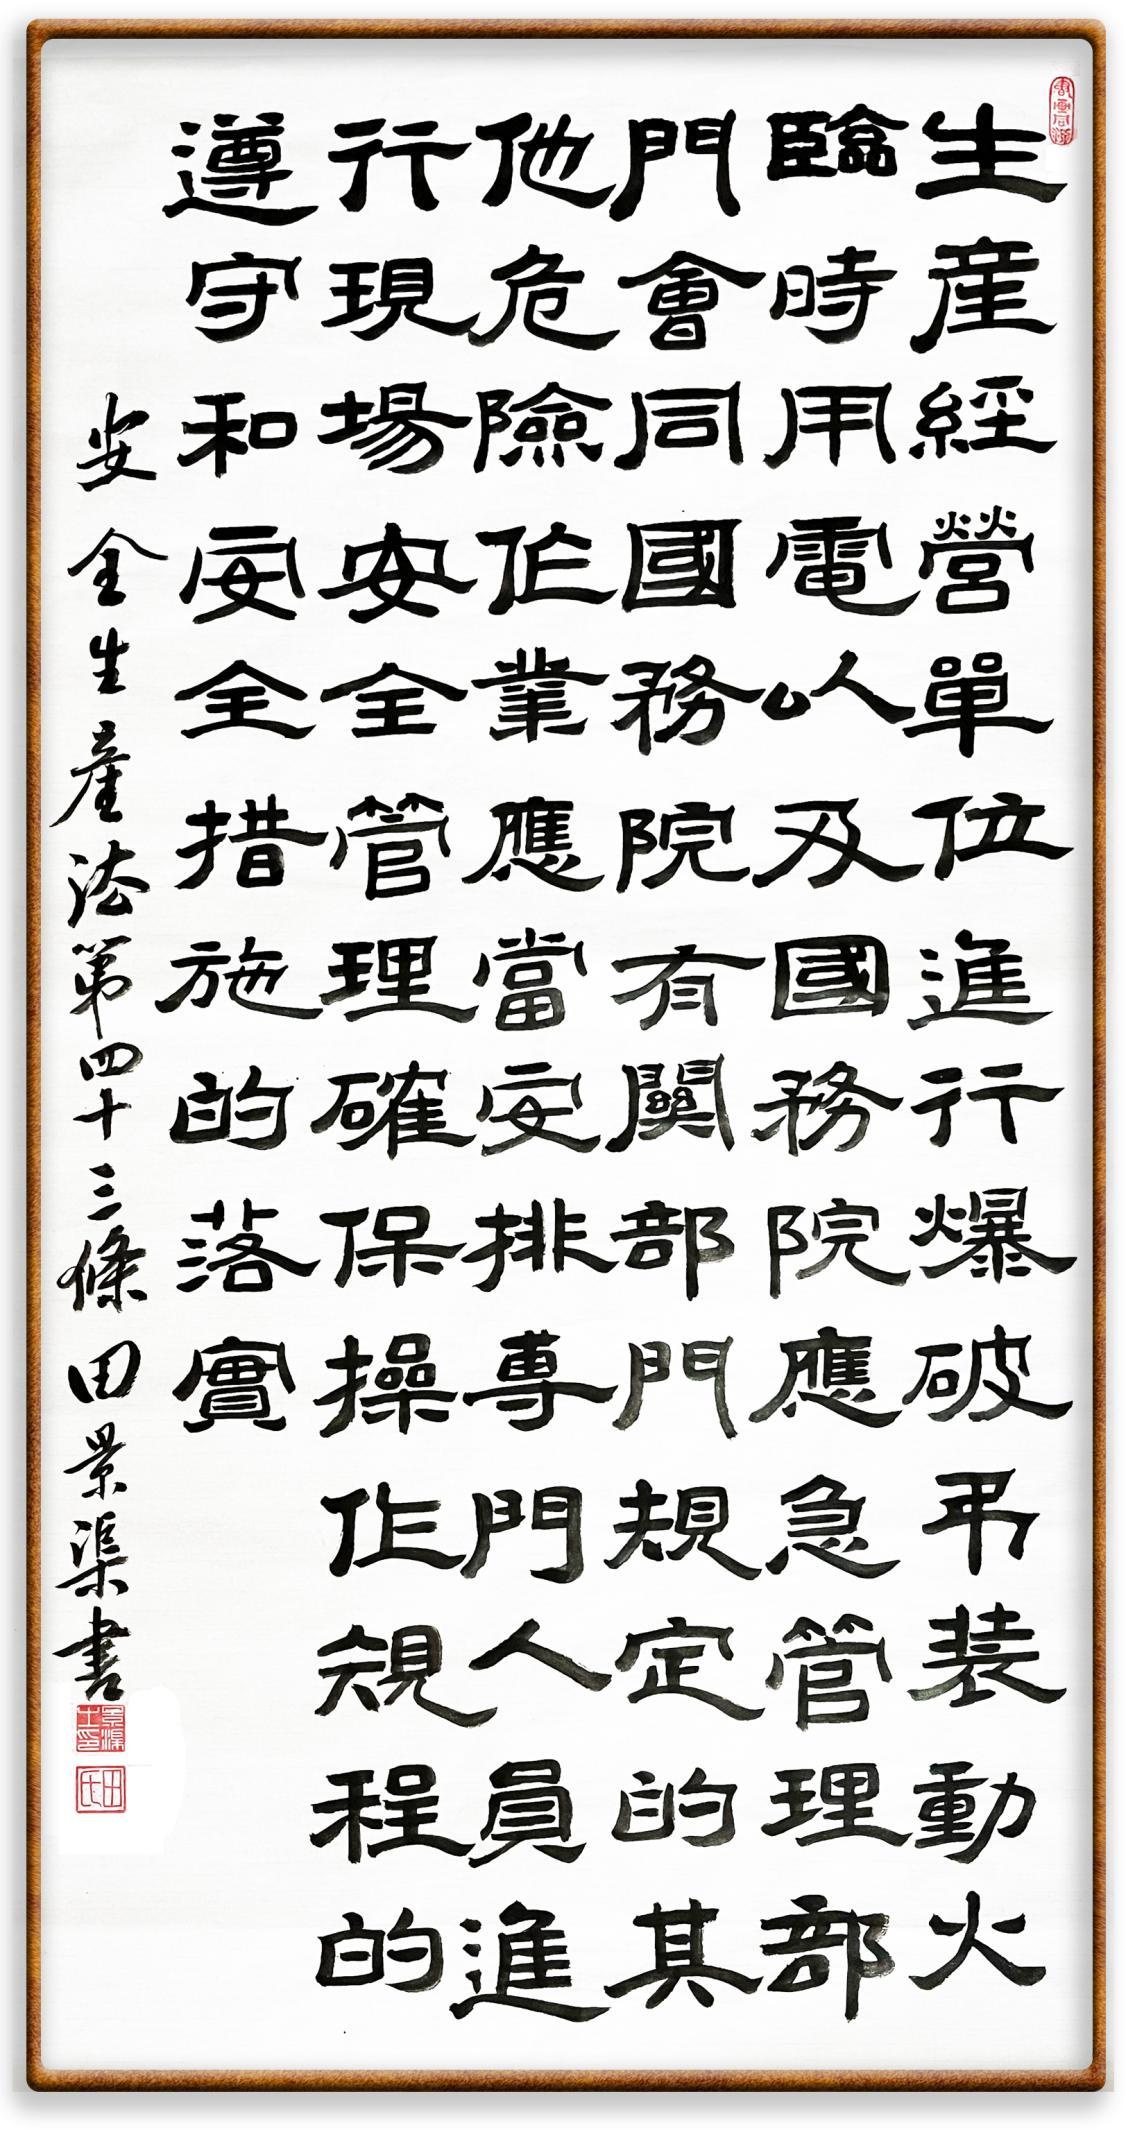 生産經營單位進行爆破吊装動火
臨時用電以及國務院應急管理部
門會同國務院有関部門規定的其
他危險作業應當安排専門人員進
行現場安全管理確保操作規程的
遵守和安全措施的落實
安全生産法第四十三條田景渠書